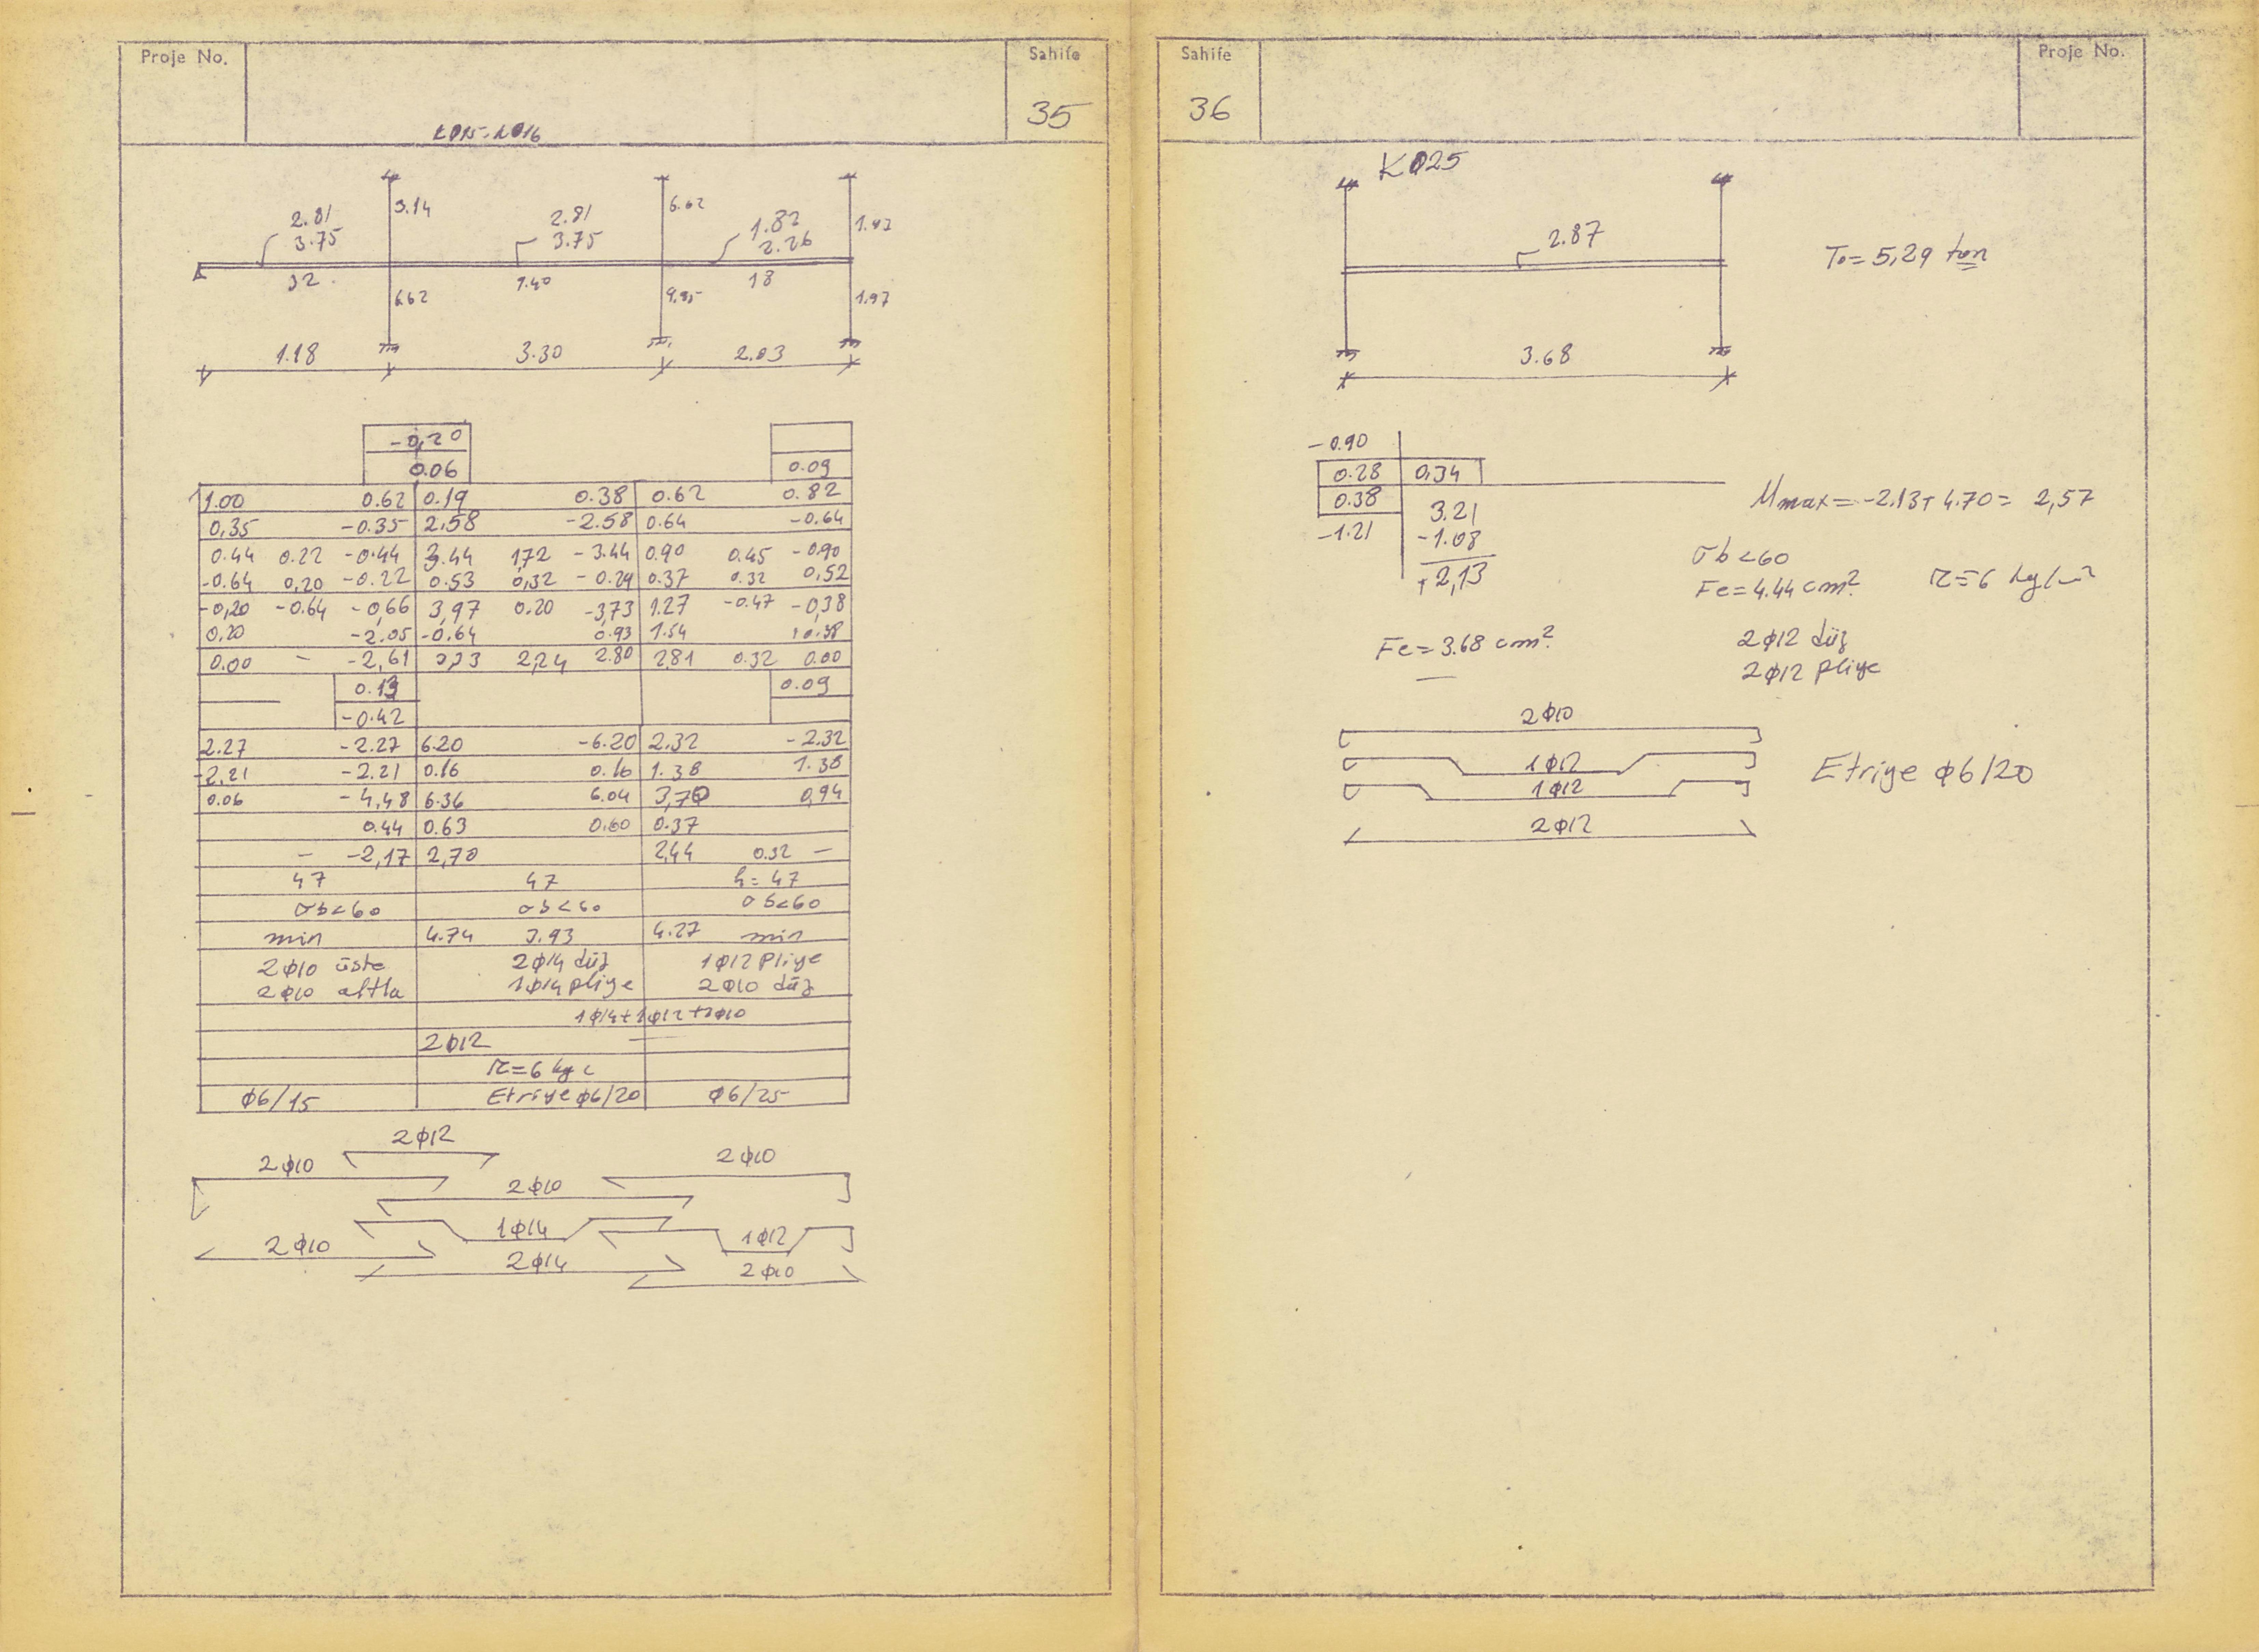 Proje No.
Sahife
35
2.81
3.75
3.14
2.81
3.75
6.62
1.82
2.26
32
6.62
18
1.97
1.18
3.30
2.03
-0,20
0.06
0.09
1.00 0.62 0.19 0.38 0.62 0.82
0,35 -0.35 2.58 -2.58 0.64 -0.64
0.44 0.22 -0.44 3.44 1,72 -3.44 0.90 0.45 -0.90
-0.64 0,20 -0.22 0.53 0,32 -0.29 0.37 0.32 0,52
-0,20 -0.64 -0,66 3,97 0.20 -3,73 1.27 -0.47 -0,38
0,20 -2.05 -0.64 0.93 1.54 0.38
0.00 - -2,61 2,24 2.80 2,81 0.32 0.00
0.13
0.09
-0.42
2.27 -2.27 6.20 -6.20 2,32 -2.32
-2,21 -2.21 0.16 0.16 1.38 1.38
0.06 -4,48 6.36 6.04 3,70 0,94
0.44 0.63 0.60 0.37
- -2,17 2,70 2,44 0.32 -
47 47 h=47
σb<60 σb<60 σb<60
min 4.74 3.93 4.27 min
2ϕ10 üste 2ϕ14 düz 1ϕ12 Pliye
2ϕ10 altta 1ϕ14 pliye 2ϕ10 düz
1ϕ14+1ϕ12+2ϕ10
2ϕ12
τ=6 kg
ϕ6/15 Etriye ϕ6/20 ϕ6/25
2ϕ12
2ϕ10
2ϕ10
2ϕ10
1ϕ14
1ϕ12
2ϕ10
2ϕ14
2ϕ10
Sahife
Proje No.
36
KØ25
2.87
To=5,29 ton
3.68
-0.90
0.28 0,34
0.38
3.21
-1.21
-1.08
+2,13
Mmax=-2.13+4.70=2,57
σb<60
Fe=4.44 cm²
τ=6 kg/cm²
Fe=3.68 cm²
2ϕ12 düz
2ϕ12 pliye
2ϕ10
1ϕ12
1ϕ12
2ϕ12
Etriye ϕ6/20